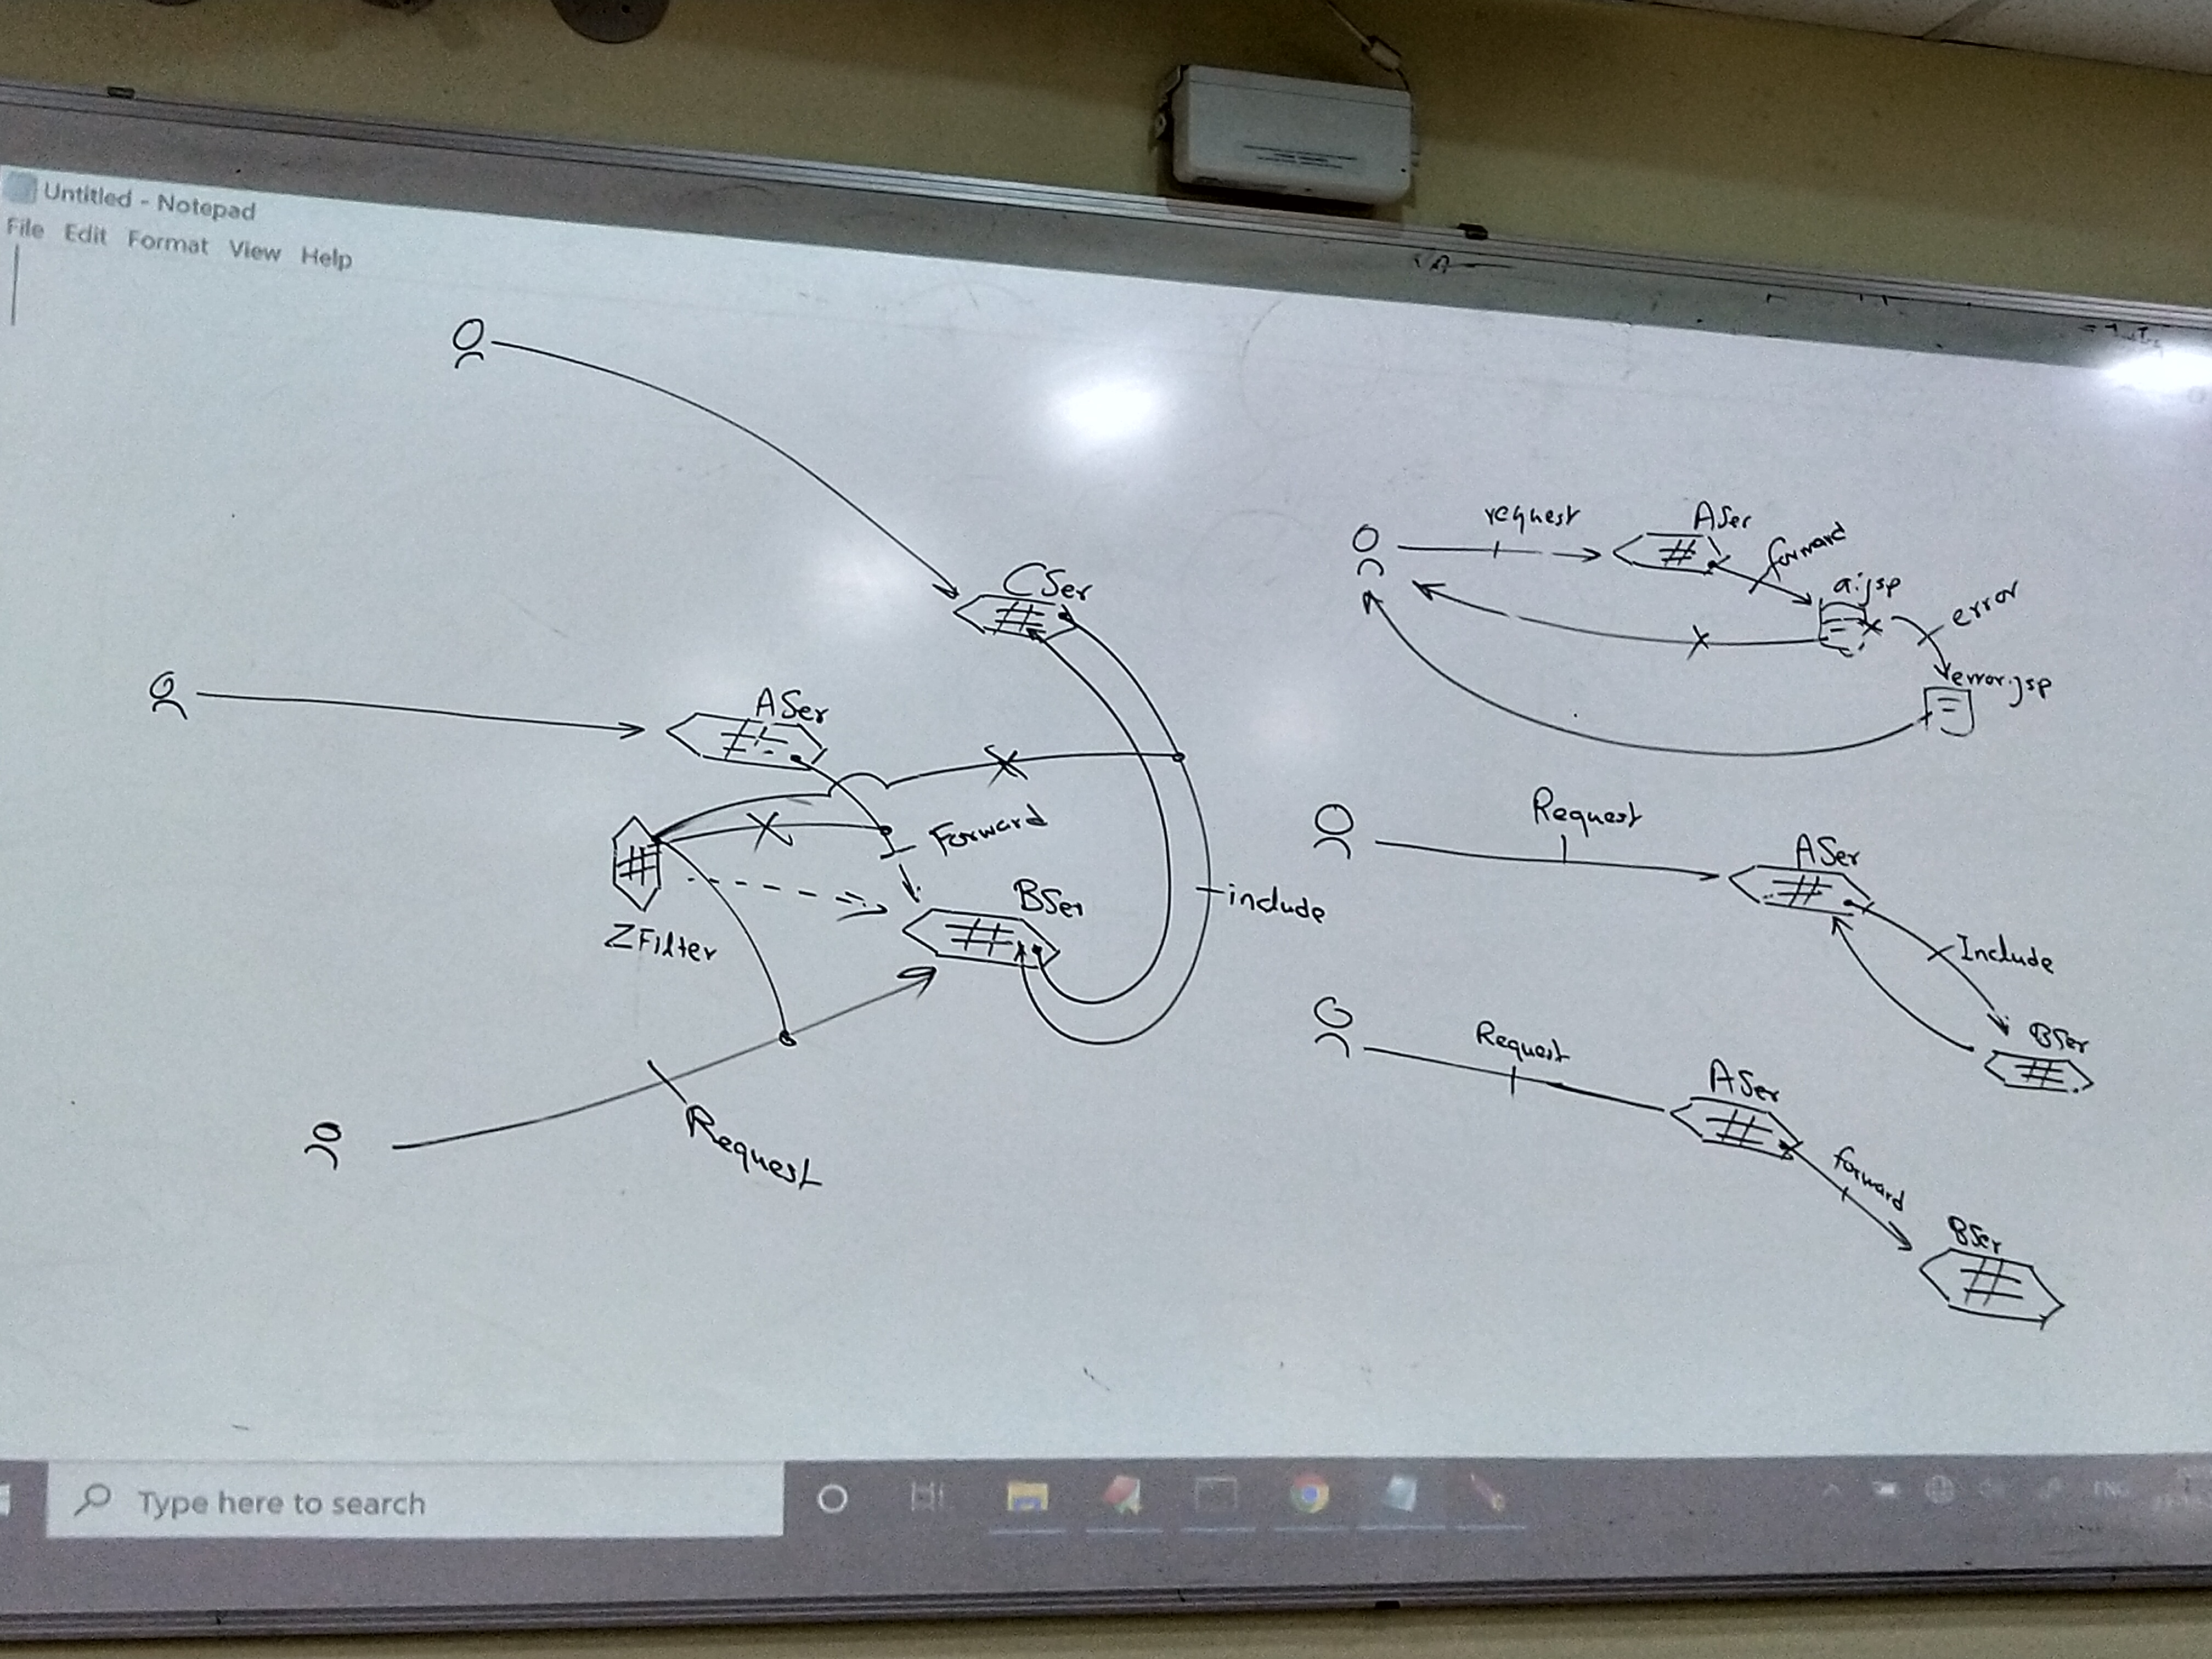 Untitled - Notepad
File Edit Format View Help
CSer
ASer
Forward
BSer
include
ZFilter
Request
request
ASer
forward
a.jsp
error
error.jsp
Request
ASer
Include
BSer
Request
ASer
forward
BSer
Type here to search
ENG